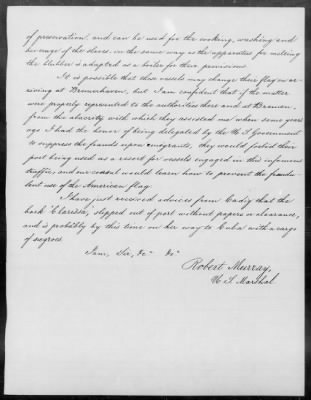 of preservation, and can be used for the cooking, washing and
beverage of the slaves, in the same way as the apparatus for melting
the blubber is adapted as a boiler for their provisions.
It is possible that these vessels may change their flag on ar-
riving at Bremerhaven, but I am confident that if the matter
were properly represented to the authorities there and at Bremen,
from the alacrity with which they assisted me when some years
ago I had the honor of being delegated by the U S Government
to suppress the frauds upon emigrants, they would forbid their
port being used as a resort for vessels engaged in this infamous
traffic, and our consul would learn how to prevent the fraudu-
lent use of the American flag.
I have just received advices from Cadiz that the
bark "Clarissa," slipped out of port without papers or clearance,
and is probably by this time on her way to Cuba with a cargo
of negroes.
I am, Sir, &c &c
Robert Murray,
U. S. Marshal